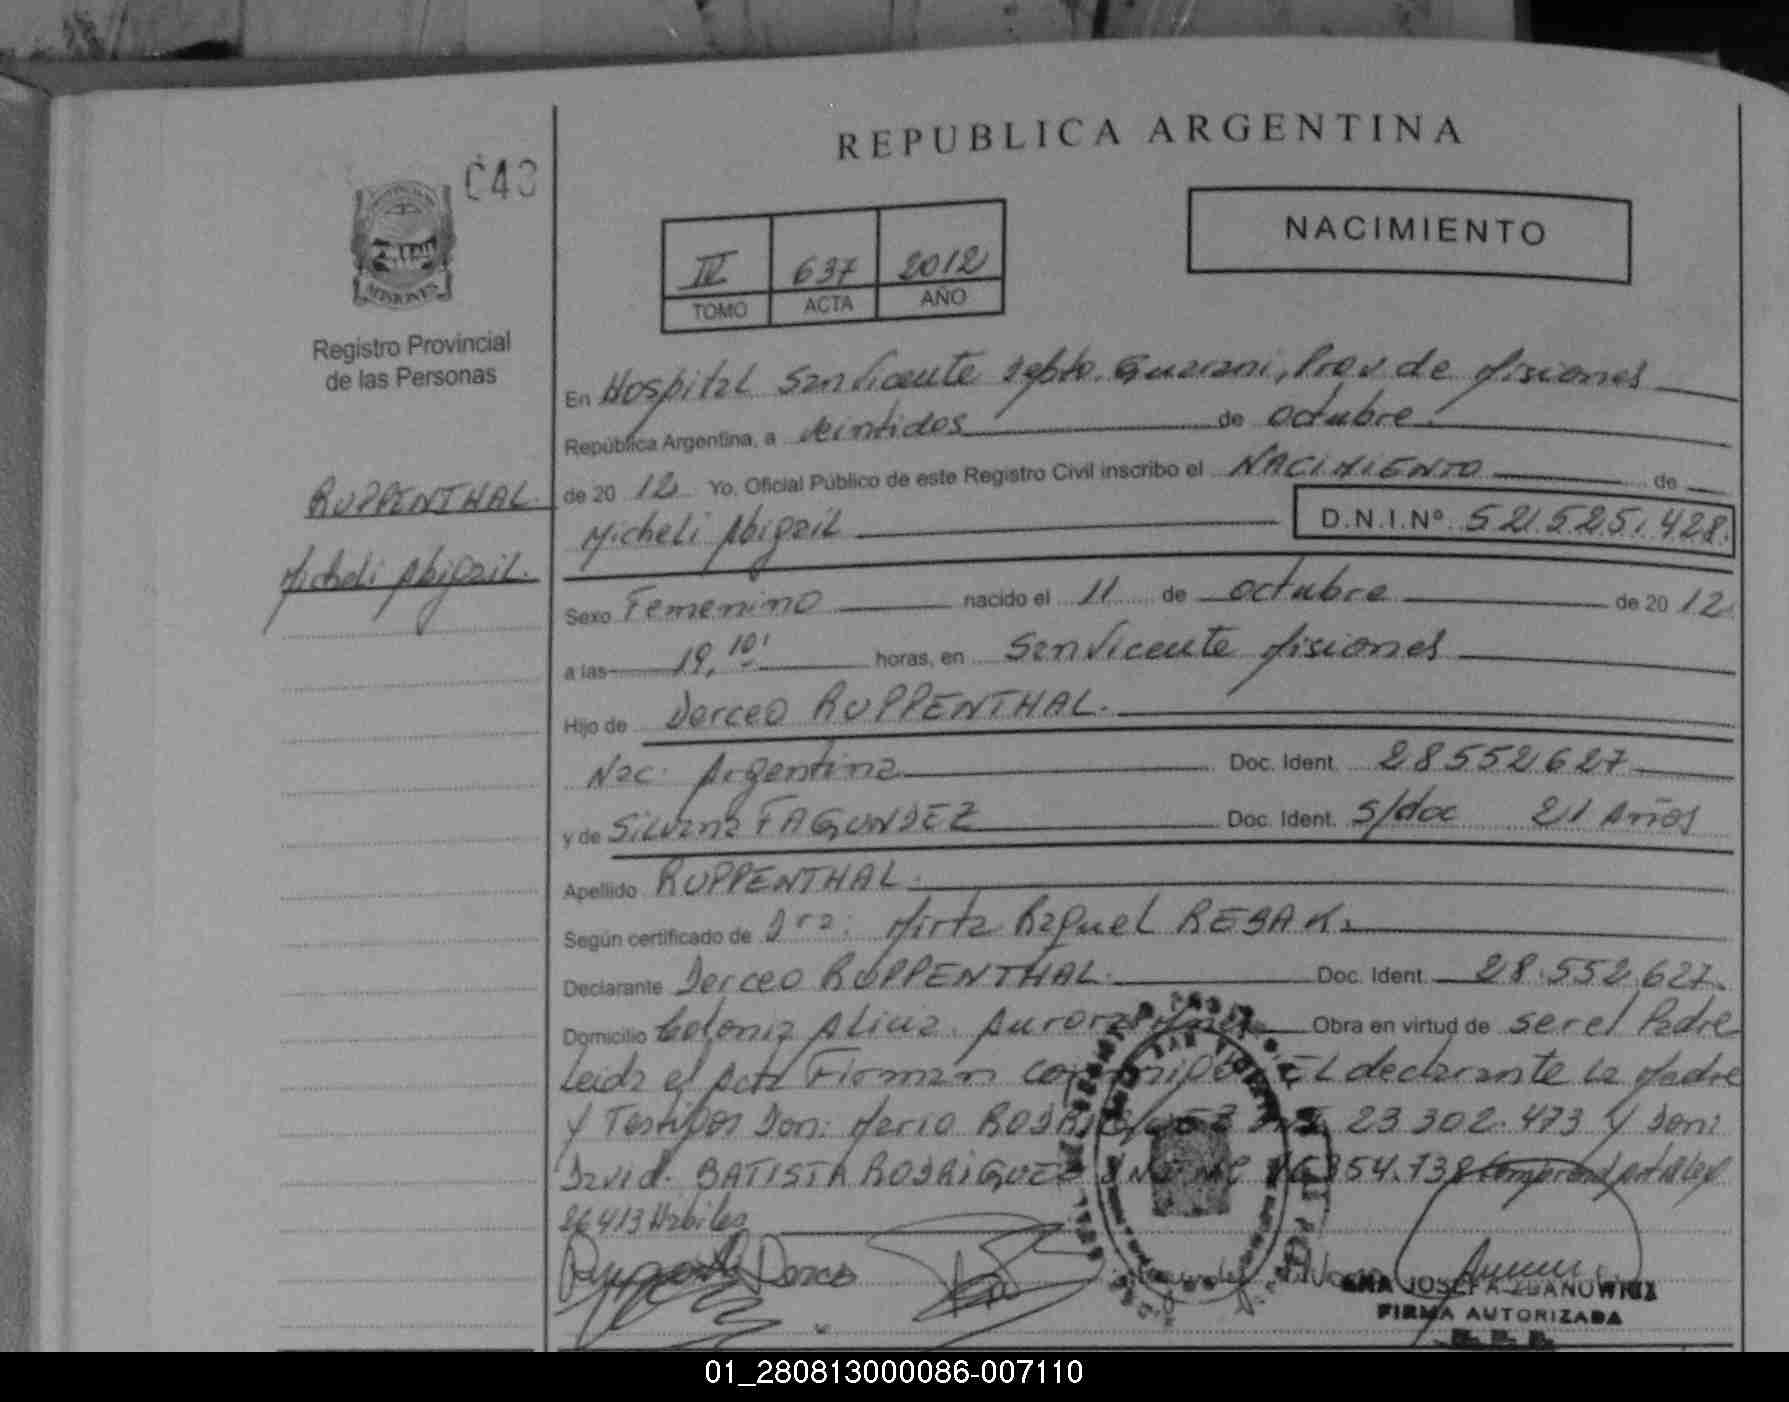 REPUBLICA ARGENTINA
043
NACIMIENTO
IV 637 2012
TOMO ACTA AÑO
MISIONES
Registro Provincial
de las Personas
En Hospital San Vicente Depto. Guarani, Prov de Misiones
República Argentina, a veintidos de octubre.
de 20 12 Yo, Oficial Público de este Registro Civil inscribo el NACIMIENTO de
RUPPENTHAL.
Micheli Abigail.
Micheli Abigail D.N.I.Nº 52.525.428.
Sexo Femenino nacido el 11 de octubre de 20 12.
a las 19,10' horas, en San Vicente Misiones
Hijo de Derceo RUPPENTHAL.
Nac. Argentina Doc. Ident. 28552627
y de Silvana FAGUNDEZ Doc. Ident. s/doc 21 Años
Apellido RUPPENTHAL.
Según certificado de Dra: Mirta Raquel REBAK.
Declarante Derceo RUPPENTHAL. Doc. Ident. 28.552.627.
Domicilio Colonia Alicia. Aurora Obra en virtud de ser el Padre
Leida el Acta Firman conmigo EL declarante la Madre
Y Testigos Don: Mario RODRIGUEZ DNI 23.302.473 Y Don:
David. BATISTA RODRIGUEZ DNI Nº 354.738 Comprend por la Ley
26413 Habiles
ANA JOSEFA ZDANOWICZ
FIRMA AUTORIZADA
01_280813000086-007110